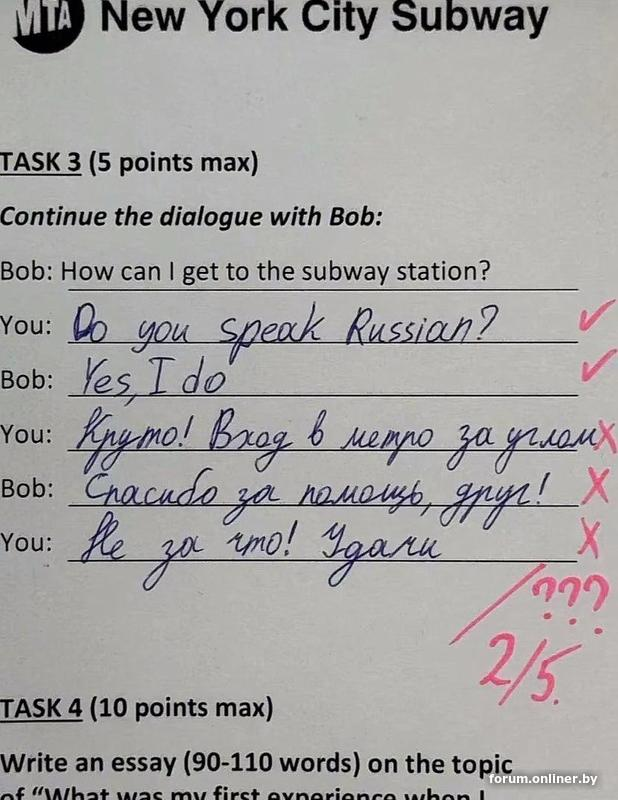 MTA New York City Subway
TASK 3 (5 points max)
Continue the dialogue with Bob:
Bob: How can I get to the subway station?
You: Do you speak Russian? ✓
Bob: Yes, I do ✓
You: Круто! Вход в метро за углом X
Bob: Спасибо за помощь, друг! X
You: Не за что! Удачи X
???
2/5.
TASK 4 (10 points max)
Write an essay (90-110 words) on the topic
of “What was my first experience when I
forum.onliner.by